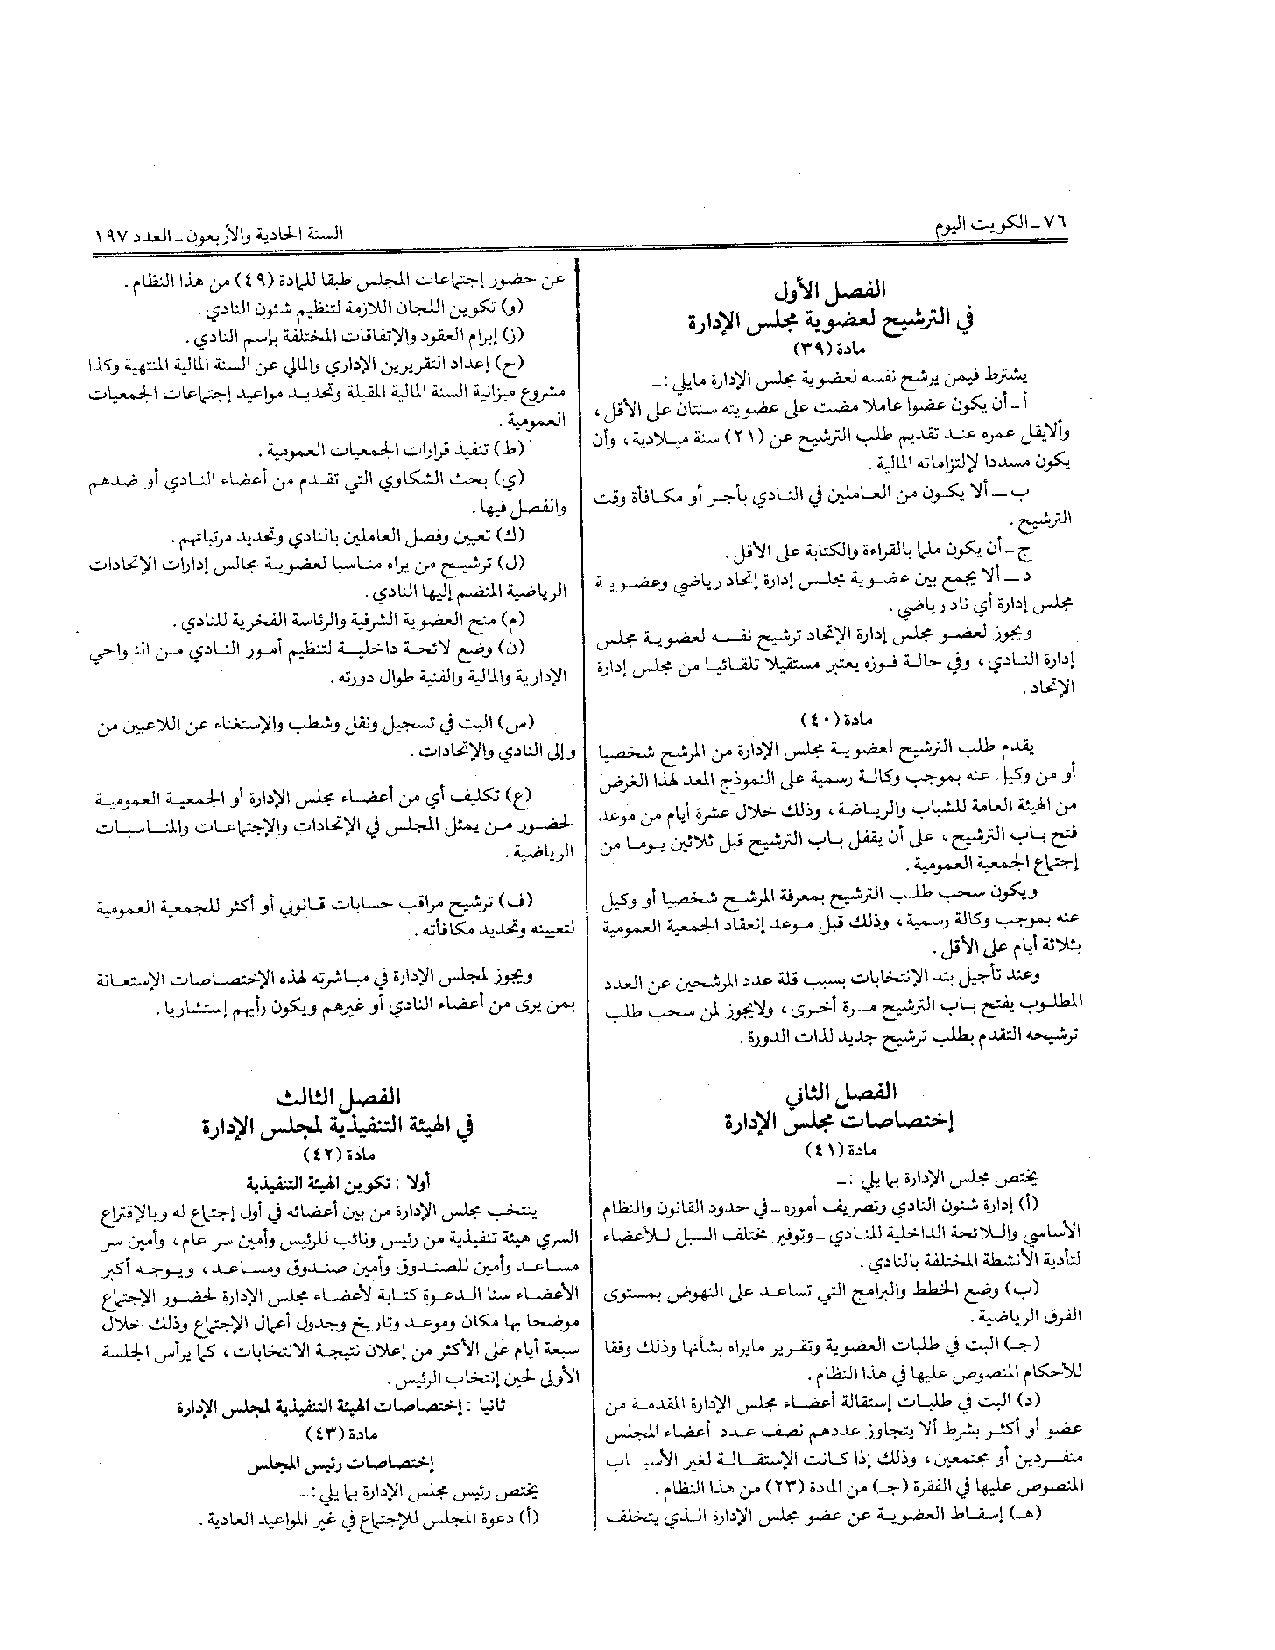 ٧٦ - الكويت اليوم
السنة الحادية والأربعون - العدد ١٩٧
الفصل الأول
في الترشيح لعضوية مجلس الإدارة
مادة (٣٩)
يشترط فيمن يرشح نفسه لعضوية مجلس الإدارة مايلي :-
أ - أن يكون عضوا عاملا مضت على عضويته سنتان على الأقل ،
وألايقل عمره عند تقديم طلب الترشيح عن (٢١) سنة ميلادية ، وأن
يكون مسددا لإلتزاماته المالية .
ب - ألا يكون من العاملين في النادي بأجر أو مكافأة وقت
الترشيح .
ج - أن يكون ملما بالقراءة والكتابة على الأقل .
د - ألا يجمع بين عضوية مجلس إدارة إتحاد رياضي وعضوية
مجلس إدارة أي ناد رياضي .
ويجوز لعضو مجلس إدارة الإتحاد ترشيح نفسه لعضوية مجلس
إدارة النادي ، وفي حالة فوزه يعتبر مستقيلا تلقائيا من مجلس إدارة
الإتحاد .
مادة (٤٠)
يقدم طلب الترشيح لعضوية مجلس الإدارة من المرشح شخصيا
أو من وكيل عنه بموجب وكالة رسمية على النموذج المعد لهذا الغرض
من الهيئة العامة للشباب والرياضة ، وذلك خلال عشرة أيام من موعد
فتح باب الترشيح ، على أن يقفل باب الترشيح قبل ثلاثين يوما من
إجتماع الجمعية العمومية .
ويكون سحب طلب الترشيح بمعرفة المرشح شخصيا أو وكيل
عنه بموجب وكالة رسمية ، وذلك قبل موعد إنعقاد الجمعية العمومية
بثلاثة أيام على الأقل .
وعند تأجيل بند الإنتخابات بسبب قلة عدد المرشحين عن العدد
المطلوب يفتح باب الترشيح مرة أخرى ، ولايجوز لمن سحب طلب
ترشيحه التقدم بطلب ترشيح جديد لذات الدورة .
الفصل الثاني
إختصاصات مجلس الإدارة
مادة (٤١)
يختص مجلس الإدارة بما يلي :-
(أ) إدارة شئون النادي وتصريف أموره - في حدود القانون والنظام
الأساسي واللائحة الداخلية للنادي - وتوفير مختلف السبل للأعضاء
لتأدية الأنشطة المختلفة بالنادي .
(ب) وضع الخطط والبرامج التي تساعد على النهوض بمستوى
الفرق الرياضية .
(جـ) البت في طلبات العضوية وتقرير مايراه بشأنها وذلك وفقا
للأحكام المنصوص عليها في هذا النظام .
(د) البت في طلبات إستقالة أعضاء مجلس الإدارة المقدمة من
عضو أو أكثر بشرط ألا يتجاوز عددهم نصف عدد أعضاء المجلس
منفردين أو مجتمعين ، وذلك إذا كانت الإستقالة لغير الأسباب
المنصوص عليها في الفقرة (جـ) من المادة (٢٣) من هذا النظام .
(هـ) إسقاط العضوية عن عضو مجلس الإدارة الذي يتخلف
عن حضور إجتماعات المجلس طبقا للمادة (٤٩) من هذا النظام .
(و) تكوين اللجان اللازمة لتنظيم شئون النادي .
(ز) إبرام العقود والإتفاقات المختلفة بإسم النادي .
(ح) إعداد التقريرين الإداري والمالي عن السنة المالية المنتهية وكذا
مشروع ميزانية السنة المالية المقبلة وتحديد مواعيد إجتماعات الجمعيات
العمومية .
(ط) تنفيذ قرارات الجمعيات العمومية .
(ي) بحث الشكاوي التي تقدم من أعضاء النادي أو ضدهم
والفصل فيها .
(ك) تعيين وفصل العاملين بالنادي وتحديد مرتباتهم .
(ل) ترشيح من يراه مناسبا لعضوية مجالس إدارات الإتحادات
الرياضية المنضم إليها النادي .
(م) منح العضوية الشرفية والرئاسة الفخرية للنادي .
(ن) وضع لائحة داخلية لتنظيم أمور النادي من النواحي
الإدارية والمالية والفنية طوال دورته .
(س) البت في تسجيل ونقل وشطب والإستغناء عن اللاعبين من
وإلى النادي والإتحادات .
(ع) تكليف أي من أعضاء مجلس الإدارة أو الجمعية العمومية
لحضور من يمثل المجلس في الإتحادات والإجتماعات والمناسبات
الرياضية .
(ف) ترشيح مراقب حسابات قانوني أو أكثر للجمعية العمومية
لتعيينه وتحديد مكافأته .
ويجوز لمجلس الإدارة في مباشرته لهذه الإختصاصات الإستعانة
بمن يرى من أعضاء النادي أو غيرهم ويكون رأيهم إستشاريا .
الفصل الثالث
في الهيئة التنفيذية لمجلس الإدارة
مادة (٤٢)
أولا : تكوين الهيئة التنفيذية
ينتخب مجلس الإدارة من بين أعضائه في أول إجتماع له وبالإقتراع
السري هيئة تنفيذية من رئيس ونائب للرئيس وأمين سر عام ، وأمين سر
مساعد وأمين للصندوق وأمين صندوق مساعد ، ويوجه أكبر
الأعضاء سنا الدعوة كتابة لأعضاء مجلس الإدارة لحضور الإجتماع
موضحا بها مكان وموعد وتاريخ وجدول أعمال الإجتماع وذلك خلال
سبعة أيام على الأكثر من إعلان نتيجة الانتخابات ، كما يرأس الجلسة
الأولى لحين إنتخاب الرئيس .
ثانيا : إختصاصات الهيئة التنفيذية لمجلس الإدارة
مادة (٤٣)
إختصاصات رئيس المجلس
يختص رئيس مجلس الإدارة بما يلي :-
(أ) دعوة المجلس للإجتماع في غير المواعيد العادية .